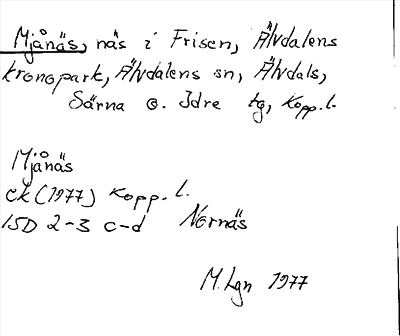 Mjånäs, näs i Frisen, Älvdalens
kronopark, Älvdalens sn, Älvdals,
Särna o. Idre tg, Kopp. l.
Mjånäs
ek (1977) Kopp. l.
15D 2-3 c-d Nornäs
M. Lgn 1977